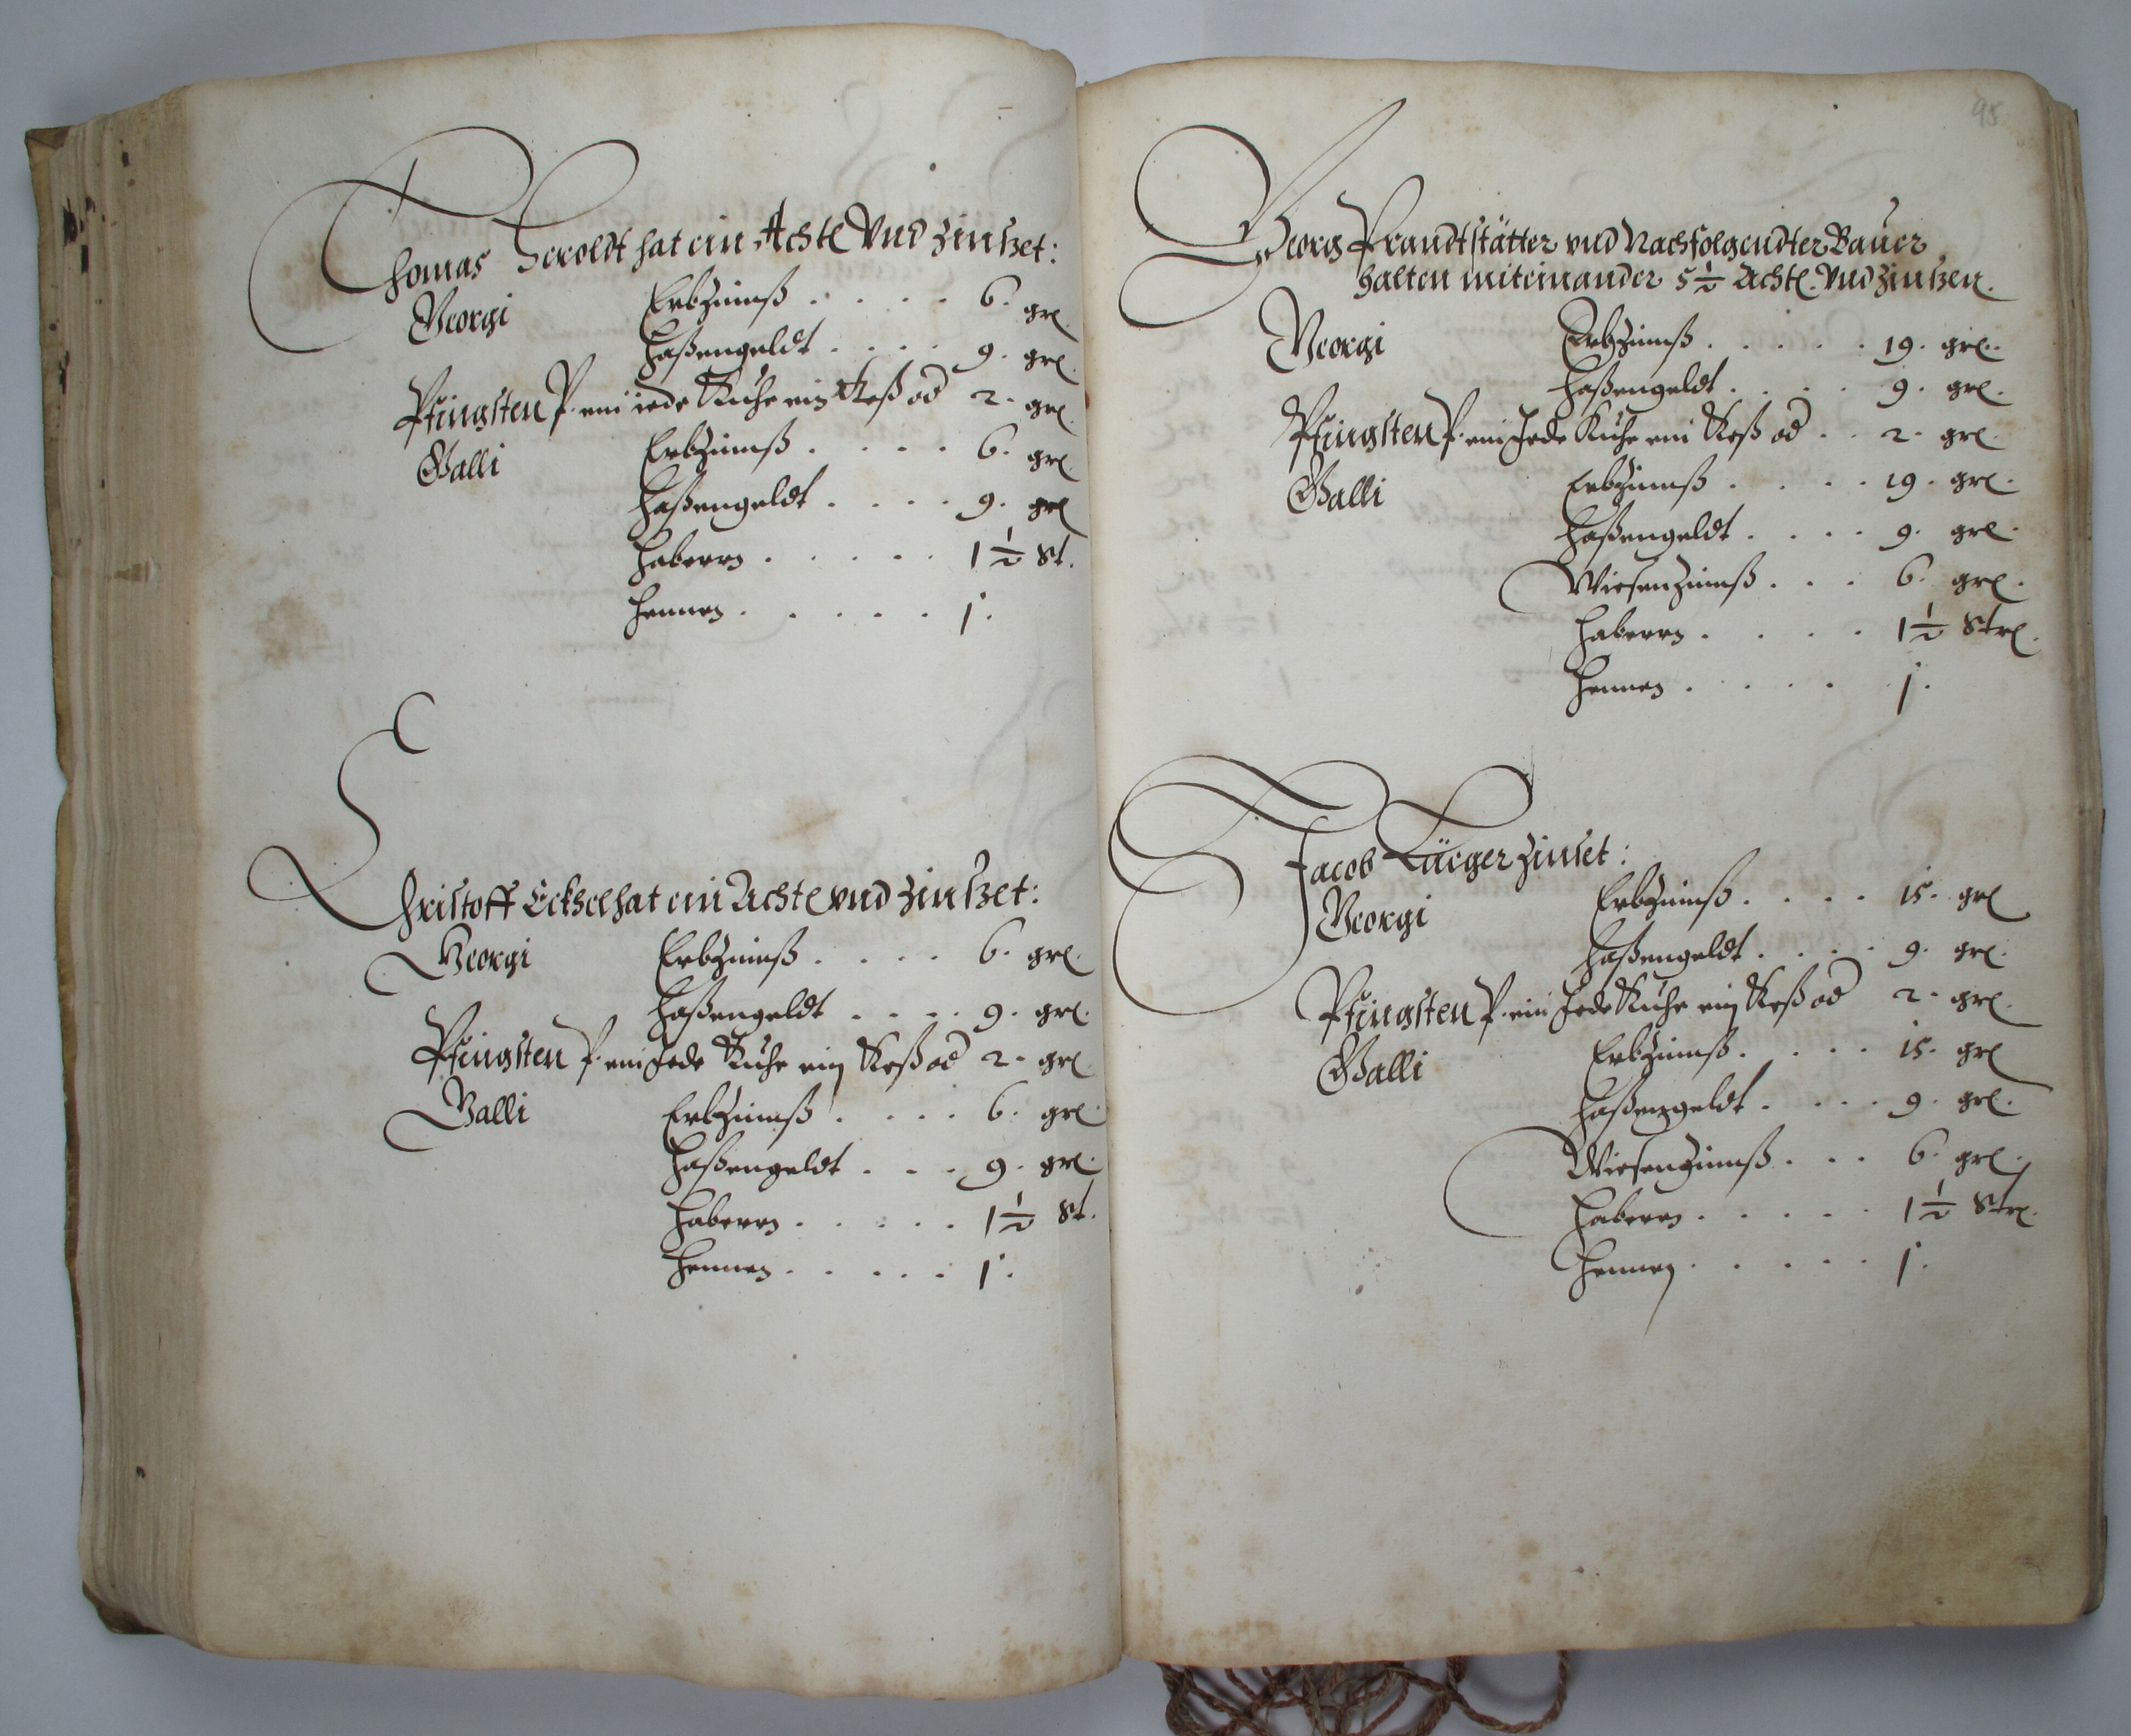 Thomas Heroldt hat ein Achtl Vnd Zinßet:
Georgi Erbzinnß . . . . 6. grl.
Haßengeldt . . . . 9. grl.
Pfingsten P. ein iede Kuhe ein Keß od 2. grl.
Galli Erbzinnß . . . . 6. grl.
Haßengeldt . . . . 9. grl
Habern . . . . . 1 1/2 St.
Hennen . . . . . 1.
Christoff Eckhel hat ein Achtl vnd Zinßet:
Georgi Erbzinnß . . . . 6. grl.
Haßengeldt . . . . 9. grl.
Pfingsten P. ein Jede Kuhe ein Keß od 2. grl.
Galli Erbzinnß . . . . 6. grl.
Haßengeldt . . . 9. grl.
Habern . . . . . 1 1/2 St.
Hennen . . . . . 1.
98
Georg Prandtstätter vnd Nachfolgendter Bauer
halten miteinander 5 1/2 Achtl. Vnd Zinßen.
Georgi Erbzinnß . . . . . 19. grl.
Haßengeldt . . . . 9. grl.
Pfingsten P. ein Jede Kuhe ein Keß od . . 2. grl.
Galli Erbzinnß . . . . 19. grl.
Haßengeldt . . . . 9. grl.
Wiesenzinnß . . . 6. grl.
Habern . . . . 1 1/2 Strl.
Hennen . . . . 1.
Jacob Lüeger Zinset:
Georgi Erbzinnß . . . . 15. grl
Haßengeldt . . . . 9. grl.
Pfingsten P. ein Jede Kuhe ein Keß od 2. grl.
Galli Erbzinnß . . . . 15. grl
Haßengeldt . . . . 9. grl.
Wiesenzinnß . . . 6. grl.
Habern . . . . . 1 1/2 Strl.
Hennen . . . . . 1.